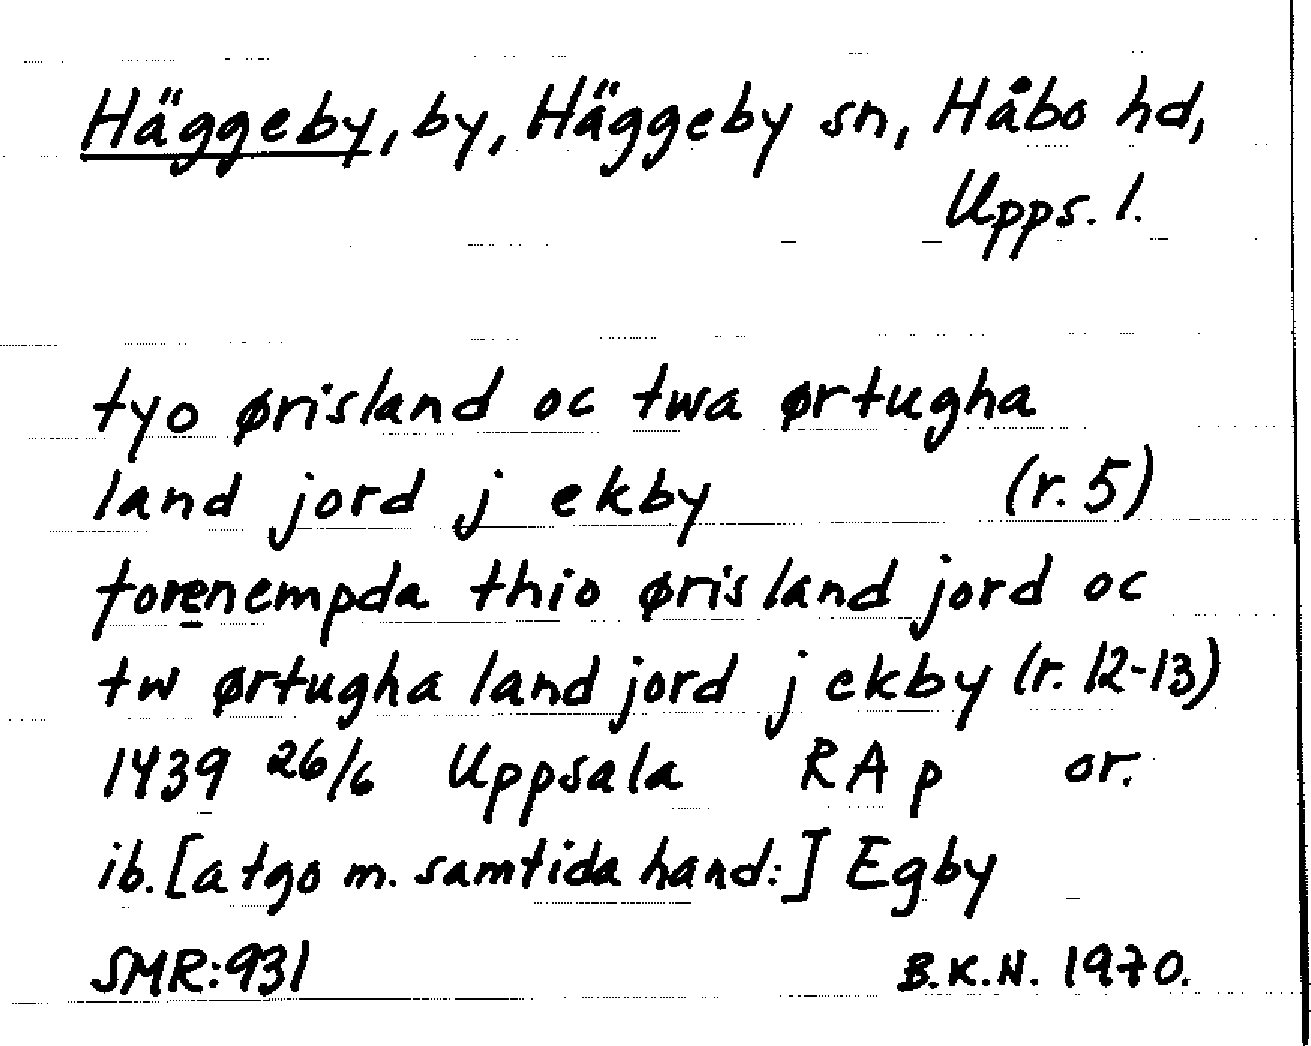 Häggeby, by, Häggeby sn, Håbo hd,
Upps. l.
tyo ørisland oc twa ørtugha
land jord j ekby (r. 5)
forenempda thio ørisland jord oc
tw ørtugha land jord j ekby (r. 12-13)
1439 26/6 Uppsala RA p or.
ib. [a tgo m. samtida hand:] Egby
SMR:931 B.K.N. 1970.